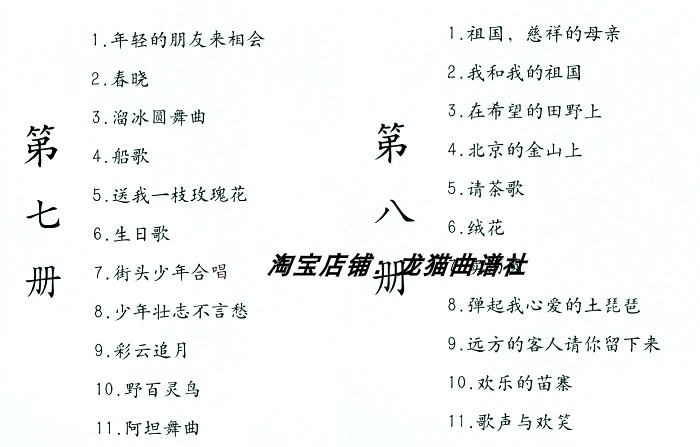 第七册
1.年轻的朋友来相会
2.春晓
3.溜冰圆舞曲
4.船歌
5.送我一枝玫瑰花
6.生日歌
7.街头少年合唱
8.少年壮志不言愁
9.彩云追月
10.野百灵鸟
11.阿坦舞曲
第八册
1.祖国，慈祥的母亲
2.我和我的祖国
3.在希望的田野上
4.北京的金山上
5.请茶歌
6.绒花
7.
8.弹起我心爱的土琵琶
9.远方的客人请你留下来
10.欢乐的苗寨
11.歌声与欢笑
淘宝店铺：龙猫曲谱社